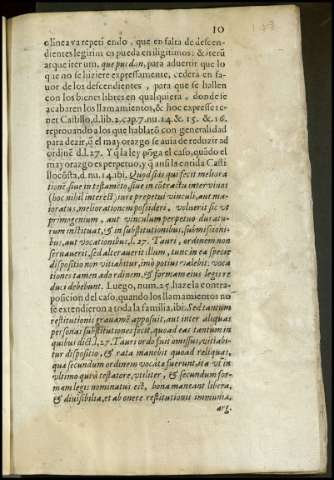 10
o linea va repeti endo, que en falta de descen-
dientes legitimos pueda en iligitimos: & iterũ
atque iterum, que puedan, para advertir que lo
que no se hiziere expressamente, cederà en fa-
uor de los descendientes, para que se hallen
con los bienes libres en qualquiera, donde se
acabaren los llamamientos, & hoc expresse te-
net Castillo, d.lib.2.cap.7.nu.14. & 15. & 16.
reprouando a los que hablarõ con generalidad
para dezir, q̃ el mayorazgo se auia de reduzir ad
ordinẽ d.l.27. Y q̃ la ley põga el caso, quãdo el
mayorazgo es perpetuo, y q̃ ansi la entiẽda Casti
llo cõsta, d.nu.14. ibi, Quod si is qui fecit meliora
tionẽ, siue in testamẽto, siue in cõtractu inter viuos
(hoc nihil interest) iure perpetui vinculi, aut ma-
ioratus, meliorationem possideri, voluerit sic vt
primogenium, aut vinculum perpetuo duratu-
rum instituat, & in substitutionibus, submissioni-
bus, aut vocationibus, l.27. Tauri, ordinem non
seruauerit, sed alterauerit illum, tunc in ea specie
dispositio non vitiabitur, imò potius valebit: voca
tiones tamen ad ordinem, & formam eius legis re
duci debebunt. Luego, num.25. haze la contra-
posicion del caso, quando los llamamientos no
se extendieron a toda la familia, ibi: Sed tantum
restitutionis grauamẽ apposuit, aut inter aliquas
personas substitutiones fecit, quod ad eas tantum in
quibus dict.l.27. Tauri ordo fuit omissus, vitiabi-
tur dispositio, & rata manebit quoad reliquas,
quæ secundum ordinem vocatæ fuerunt, ita vt in
vltimo qui à testatore, vtiliter, & secundum for-
mam legis nominatus est, bona maneant libera,
& diuisibilia, et ab onere restitutionis immunia,
arg.